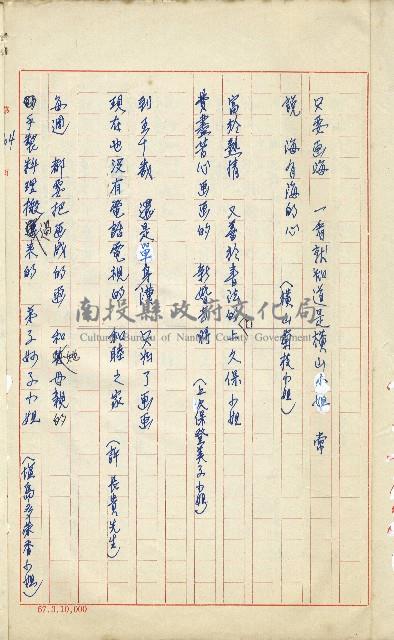 只要画海　一看就知道是横山小姐　常
說　海有海的心　（横山菊枝小姐）
富於熱情　又善於書法的上久保小姐
費盡苦心画画的　新婚郎
（上久保登美子小姐）
到五十歲　還是單身漢　只为了画画
現在也没有電話電視的　和睦之家
（許長貴先生）
每週　都要把画成的画　和她母親的
手製料理搬過來的　弟子妙子小姐
小姐）
南投縣政府文化局
Cultural Bureau of Nantou County Government
64
67.3.10,000